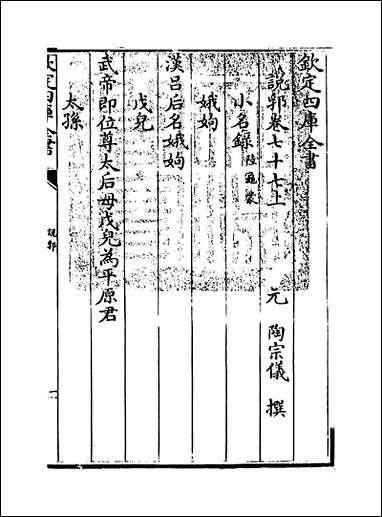 欽定四庫全書
說郛卷七十七上
元 陶宗儀 撰
小名錄 陸龜蒙
娥姁
漢呂后名娥姁
戊兒
武帝即位尊太后母戊兒為平原君
太孫
欽定四庫全書
說郛
一